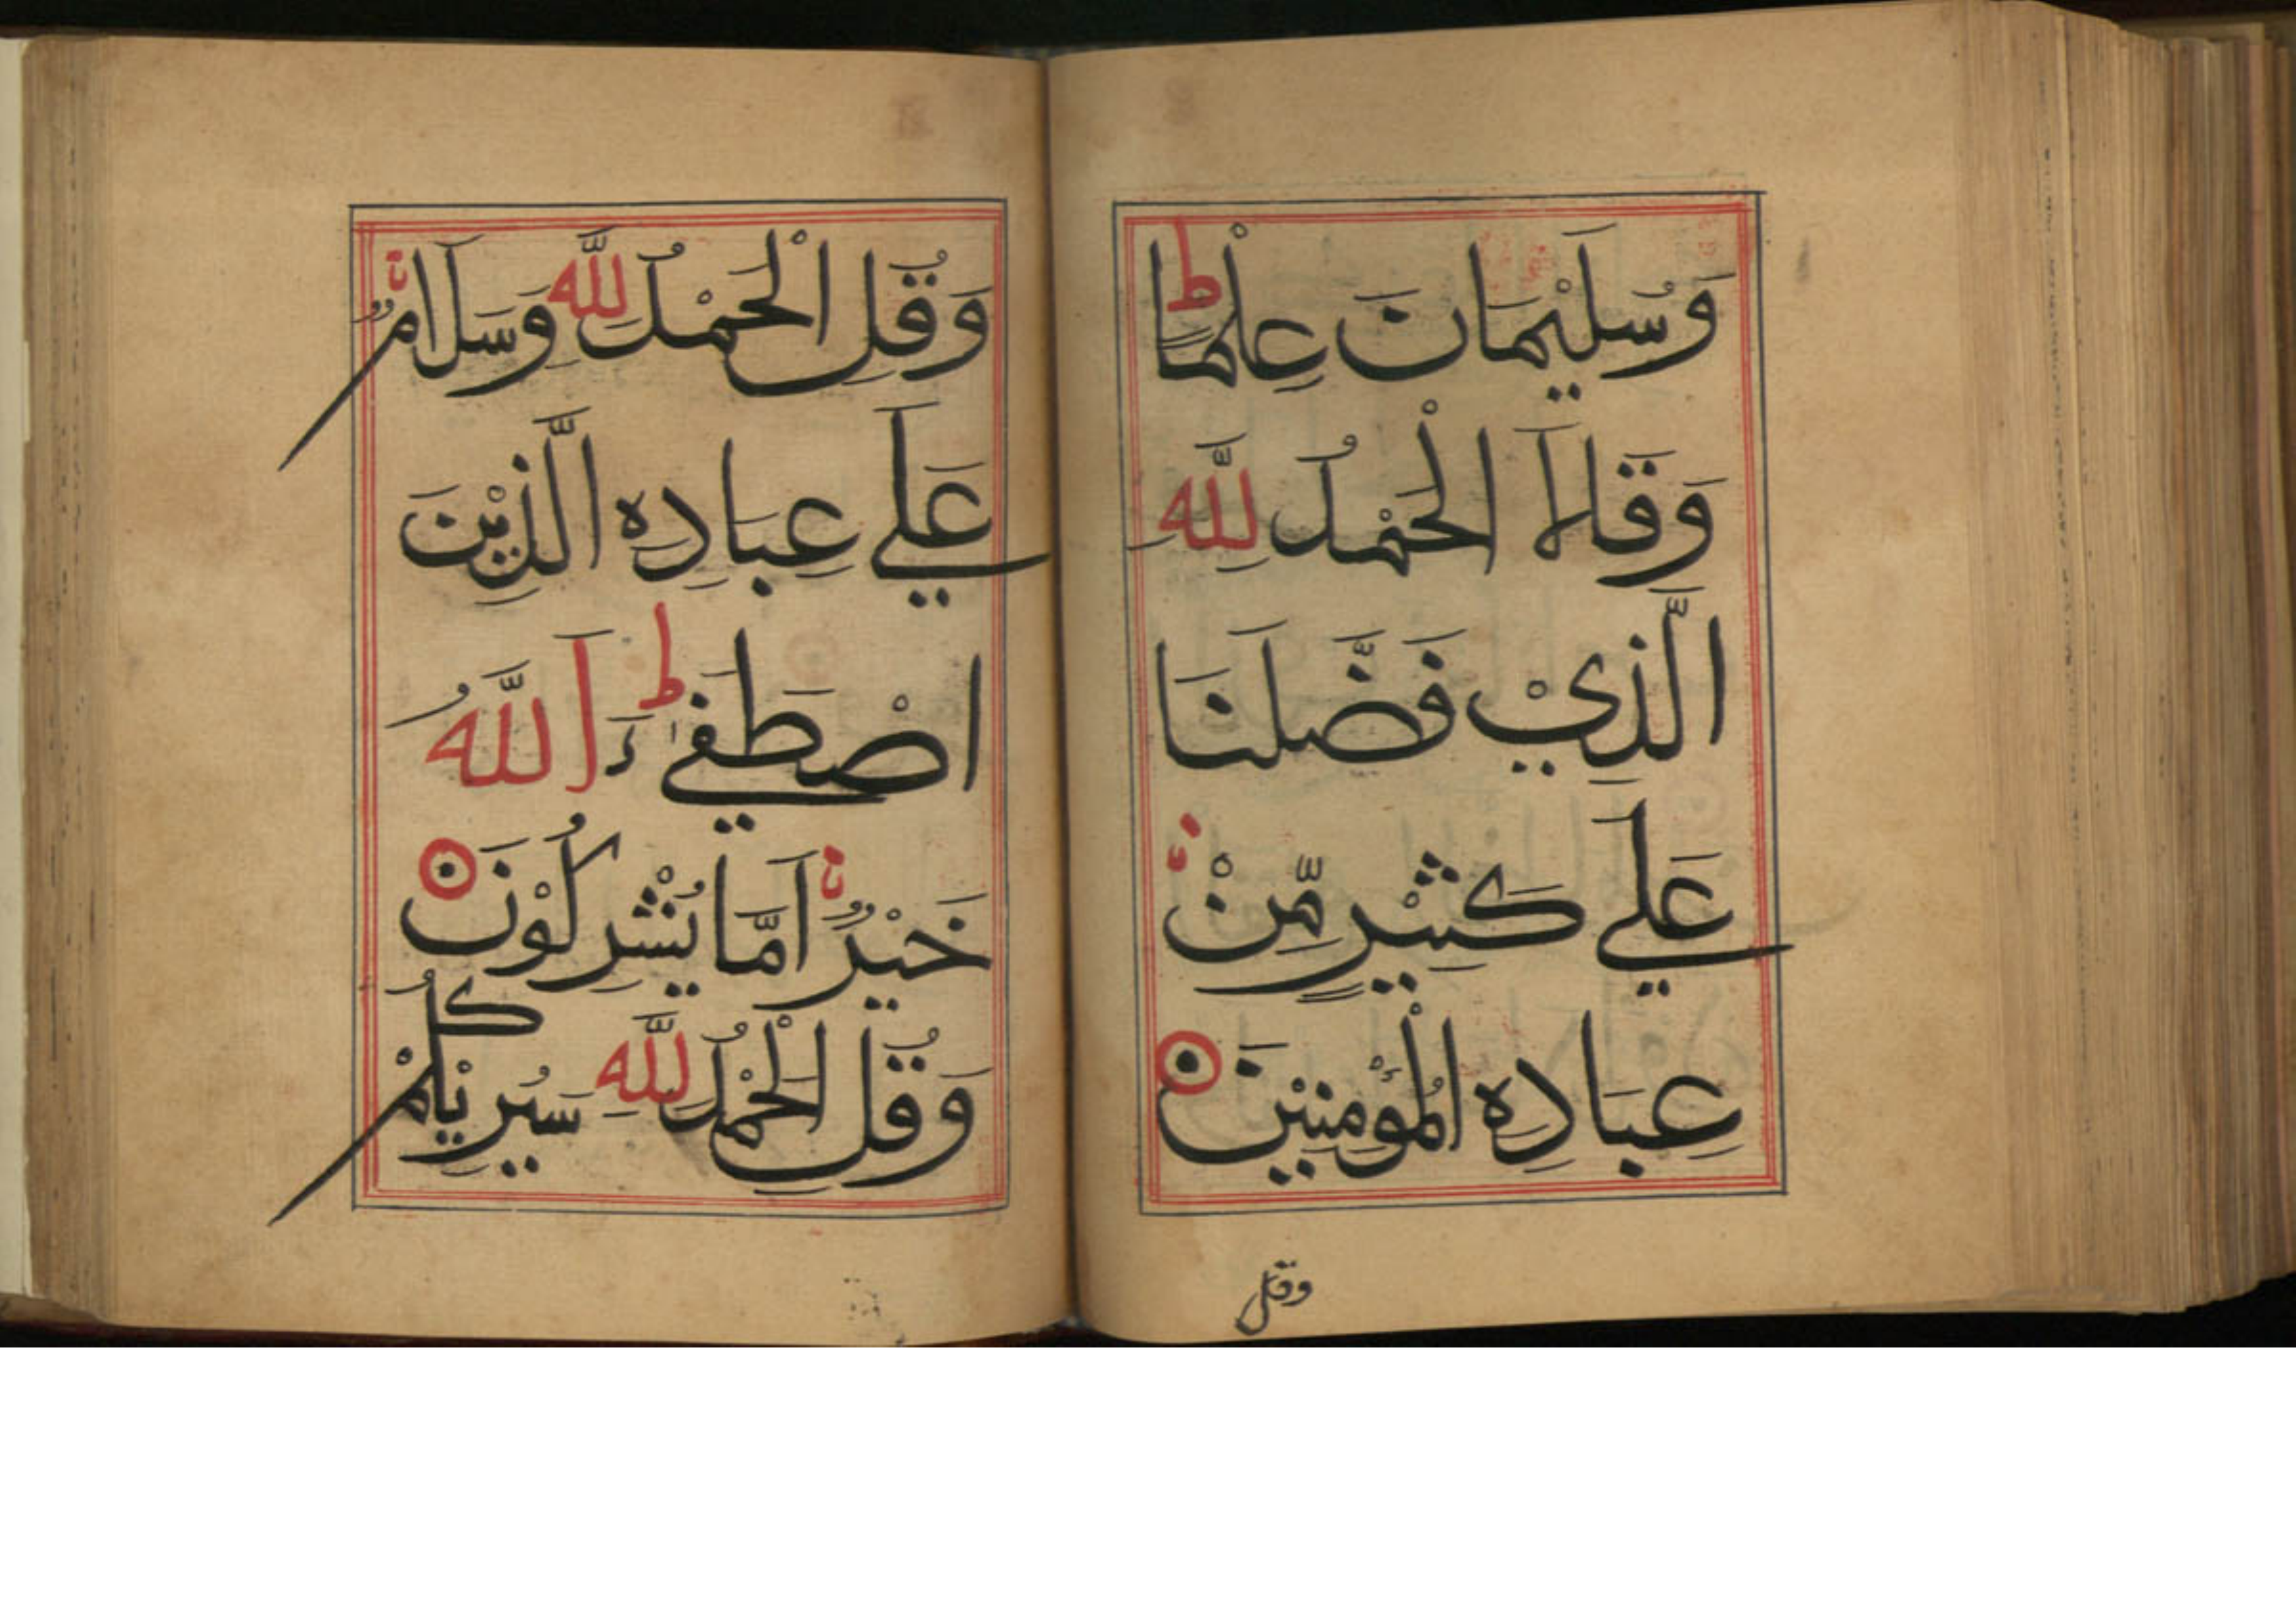 وَسُلَيْمَانَ عِلْمًا ط
وَقَالَا الْحَمْدُ لِلّٰهِ
الَّذِيْ فَضَّلَنَا
عَلٰي كَثِيْرٍ مِّنْ
عِبَادِهِ الْمُؤْمِنِيْنَ
وقل
وَقُلِ الْحَمْدُ لِلّٰهِ وَسَلَامٌ
عَلٰي عِبَادِهِ الَّذِيْنَ
اصْطَفٰي ط ءَاللّٰهُ
خَيْرٌ اَمَّا يُشْرِكُوْنَ
وَقُلِ الْحَمْدُ لِلّٰهِ سَيُرِيْكُمْ